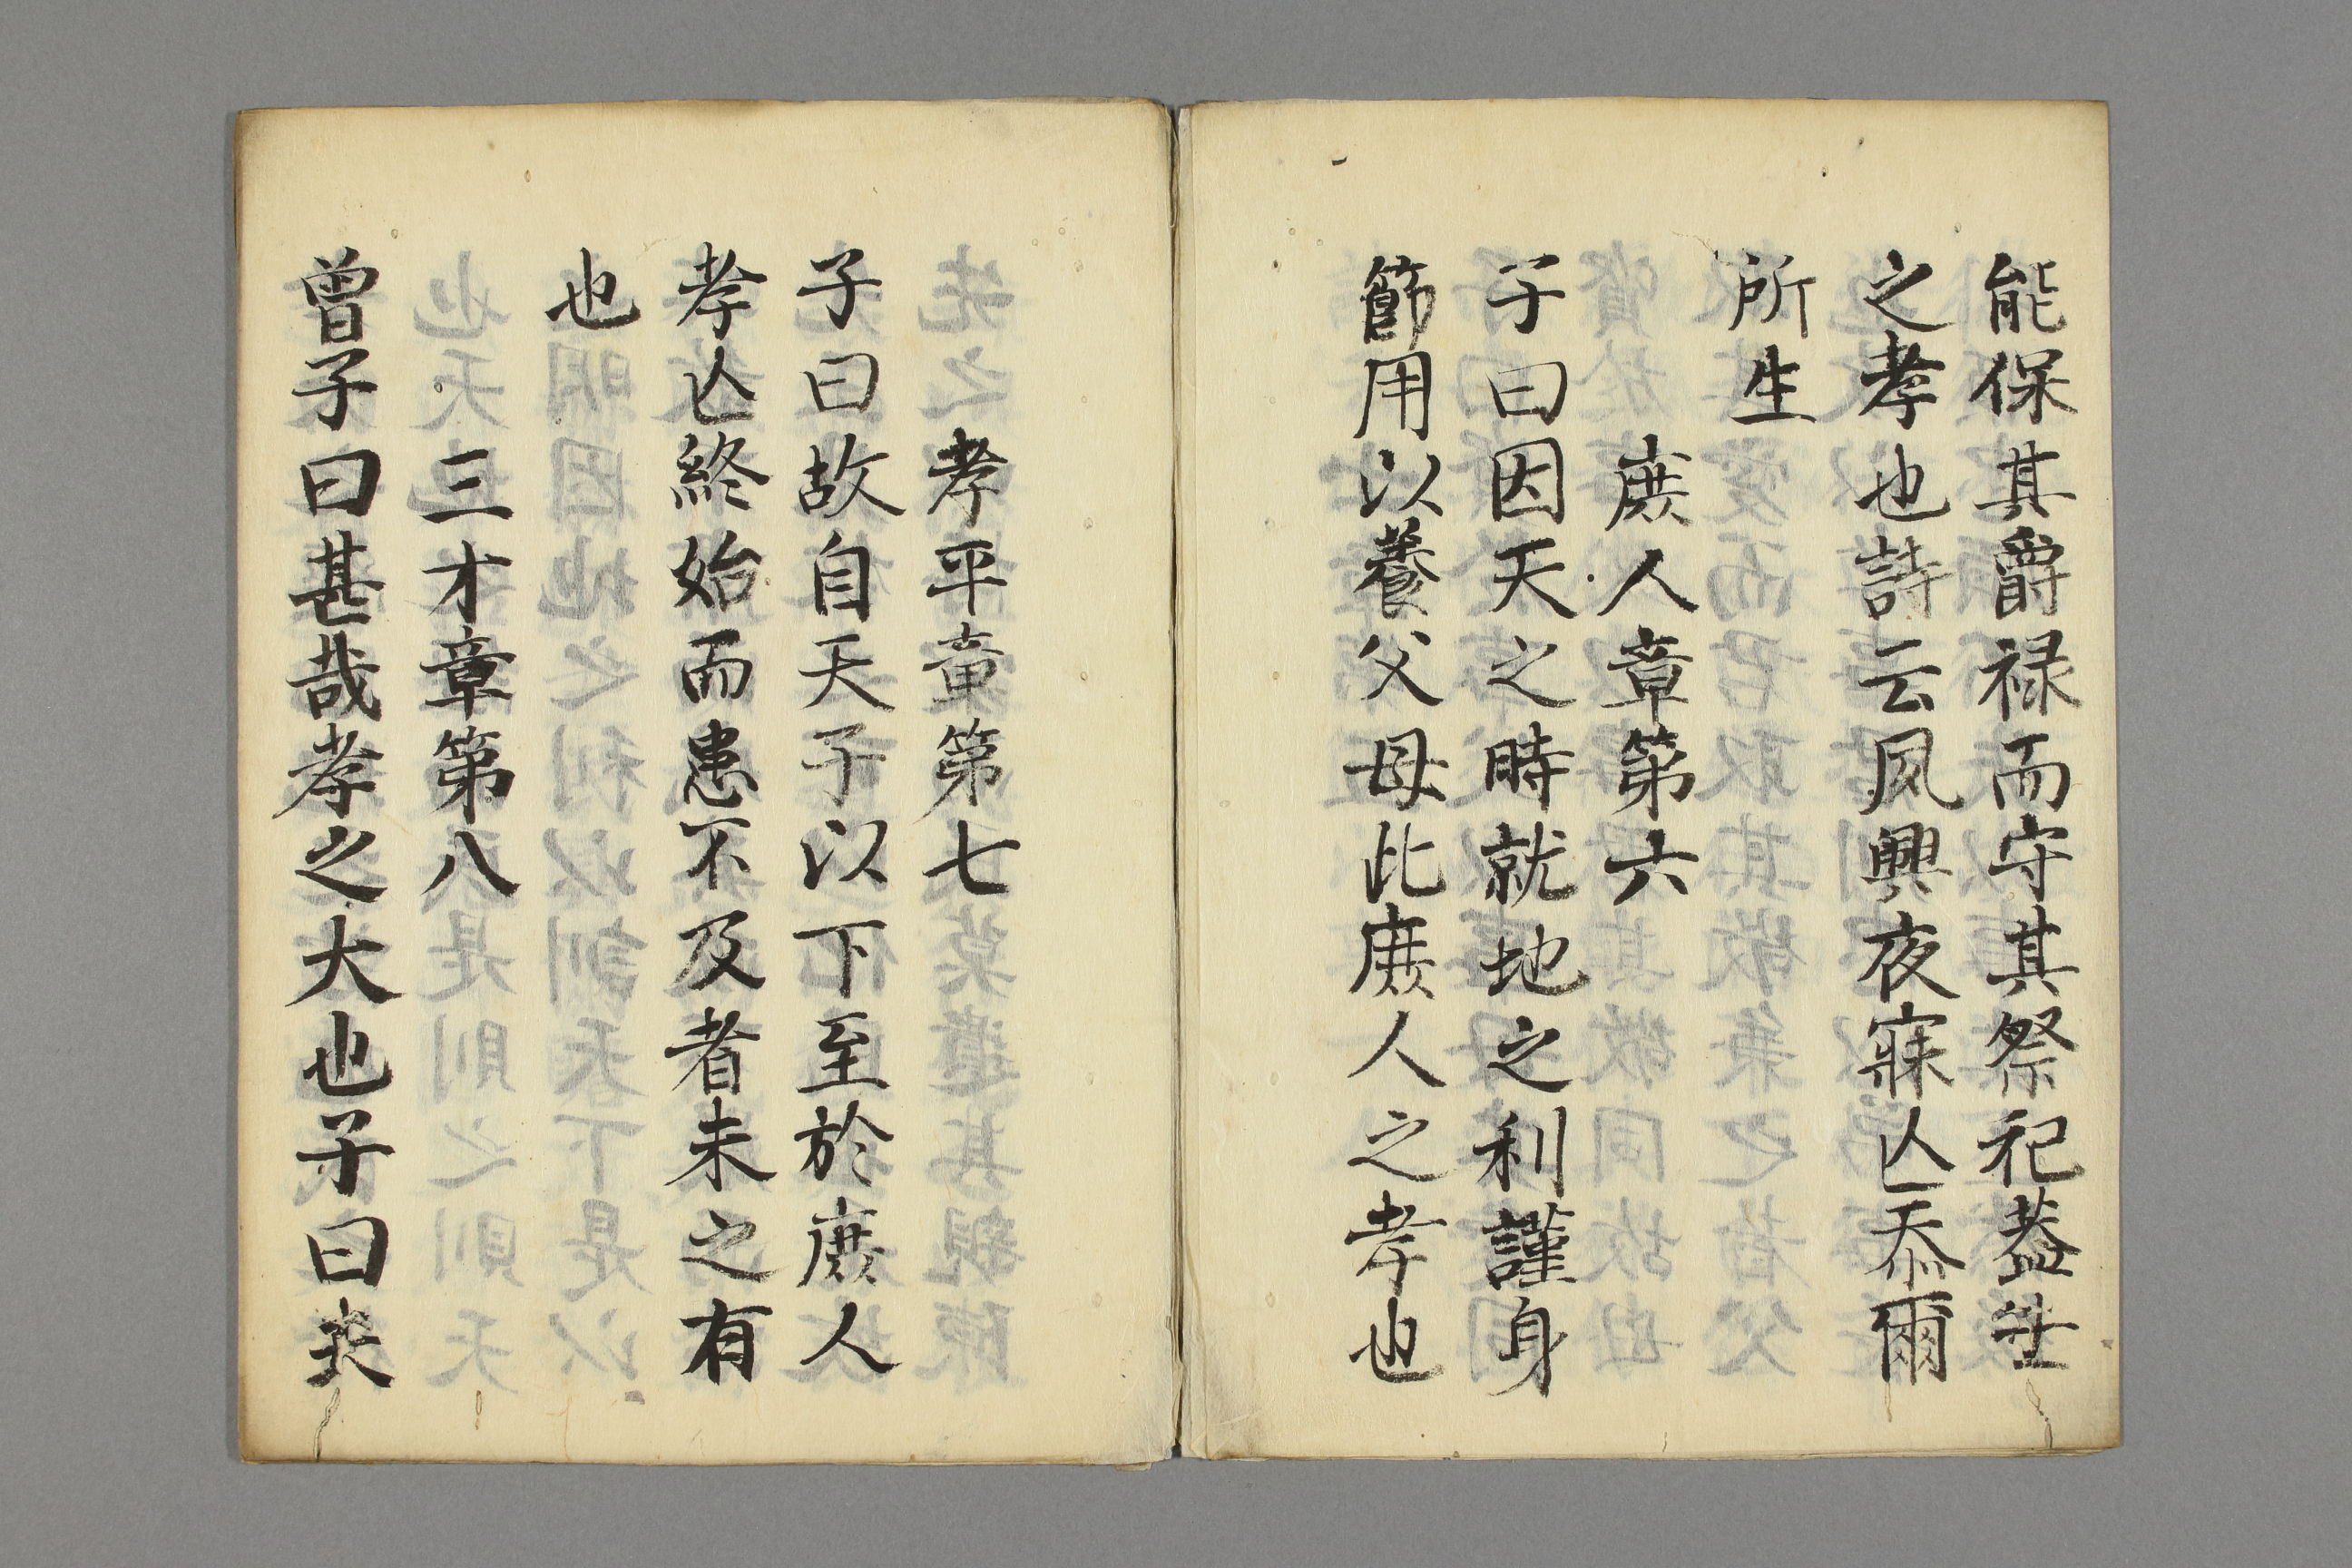 能保其爵禄而守其祭祀蓋士
之孝也詩云夙興夜寐亾忝爾
所生
庶人章第六
子曰因天之時就地之利謹身
節用以養父母此庶人之孝也
孝平章第七
子曰故自天子以下至於庶人
孝亾終始而患不及者未之有
也
三才章第八
曽子曰甚哉孝之大也子曰夫